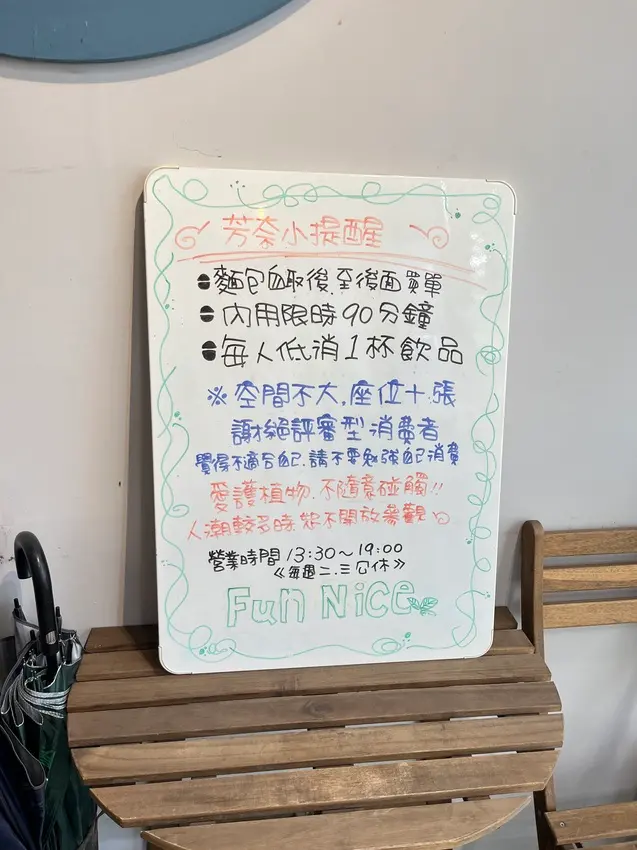 芳奈小提醒
麵包自取後.至後面買單
內用限時90分鐘
每人低消1杯飲品
※空間不大.座位十張
謝絕評審型消費者
覺得不適合自己.請不要勉強自己消費
愛護植物.不隨意碰觸!!
人潮較多時.恕不開放參觀
營業時間13:30～19:00
《每週二.三公休》
Fun Nice